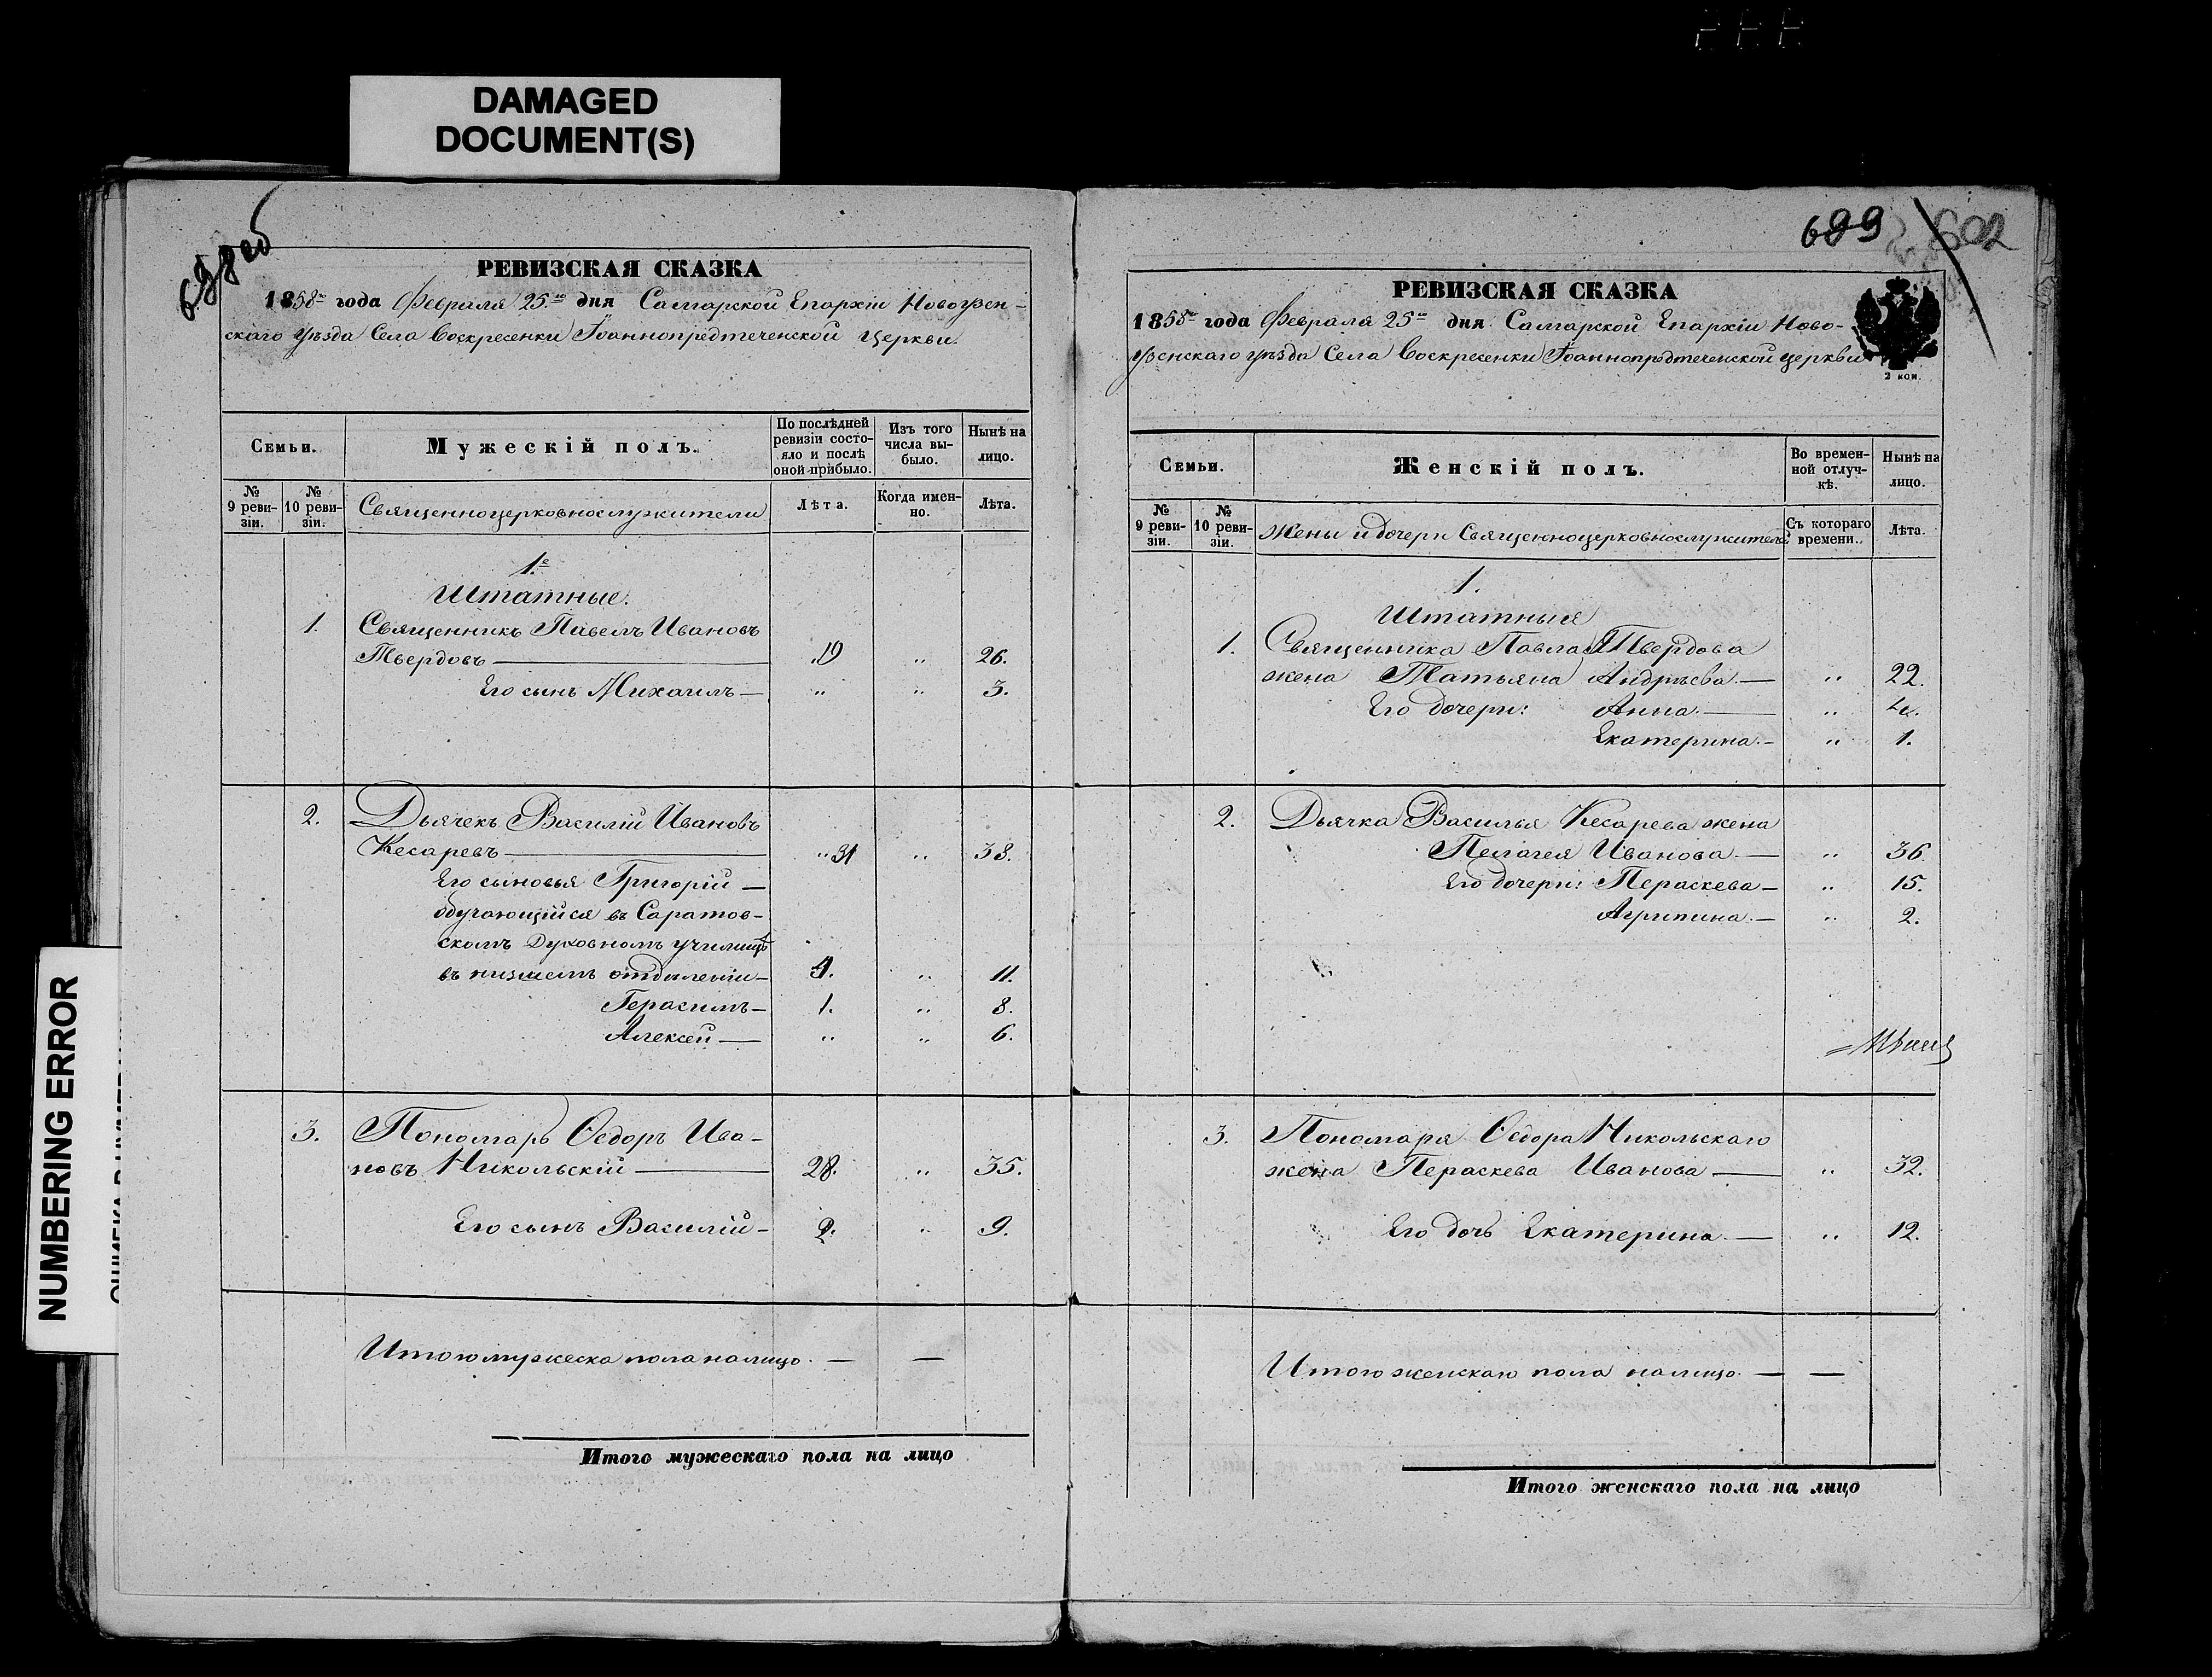 DAMAGED
DOCUMENT(S)
NUMBERING ERROR
698 об
РЕВИЗСКАЯ СКАЗКА
1858го года Февраля 25го дня Самарской Епархіи Новоузен-
скаго Уѣзда Села Воскресенки Іоаннопредтеченской Церкви.
Семьи.
Мужескій полъ.
По послѣдней ревизіи состояло и послѣ оной прибыло.
Изъ того числа выбыло.
Нынѣ на лицо.
№ 9 ревизіи.
№ 10 ревизіи.
Священноцерковнослужители
Лѣта.
Когда именно.
Лѣта.
1е
Штатные.
1. Священникъ Павелъ Ивановъ
Твердовъ — 19 " 26.
Его сынъ Михаилъ — " " 3.
2. Дьячекъ Василій Ивановъ
Кесаревъ — 31 " 38.
Его сыновья Григорій —
обучающійся въ Саратов-
скомъ Духовномъ училищѣ
въ низшемъ отдѣленіи — 4. " 11.
Герасимъ — 1. " 8.
Алексей — " " 6.
3. Пономарь Ѳедоръ Ива-
новъ Никольскій — 28. " 35.
Его сынъ Василій — 2. " 9.
Итого мужеска пола налицо. — —
Итого мужескаго пола на лицо
699
602
РЕВИЗСКАЯ СКАЗКА
1858го года Февраля 25го дня Самарской Епархіи Ново-
узенскаго уѣзда Села Воскресенки Іоаннопредтеченской церкви
2 коп.
Семьи.
Женскій полъ.
Во временной отлучкѣ.
Нынѣ на лицо.
№ 9 ревизіи.
№ 10 ревизіи.
Жены и дочери Священноцерковнослужителей
Съ котораго времени.
Лѣта.
1.
Штатныя
1. Священника Павла Твердова
жена Татьяна Андрѣева — " 22.
Его дочери: Анна — " 4.
Екатерина — " 1.
2. Дьячка Василья Кесарева жена
Пелагея Иванова — " 36.
Его дочери: Пераскева — " 15.
Агрипина — " 2.
3. Пономаря Ѳедора Никольскаго
жена Пераскева Иванова — " 32.
Его дочь Екатерина — " 12.
Итого женскаго пола налицо — —
Итого женскаго пола на лицо